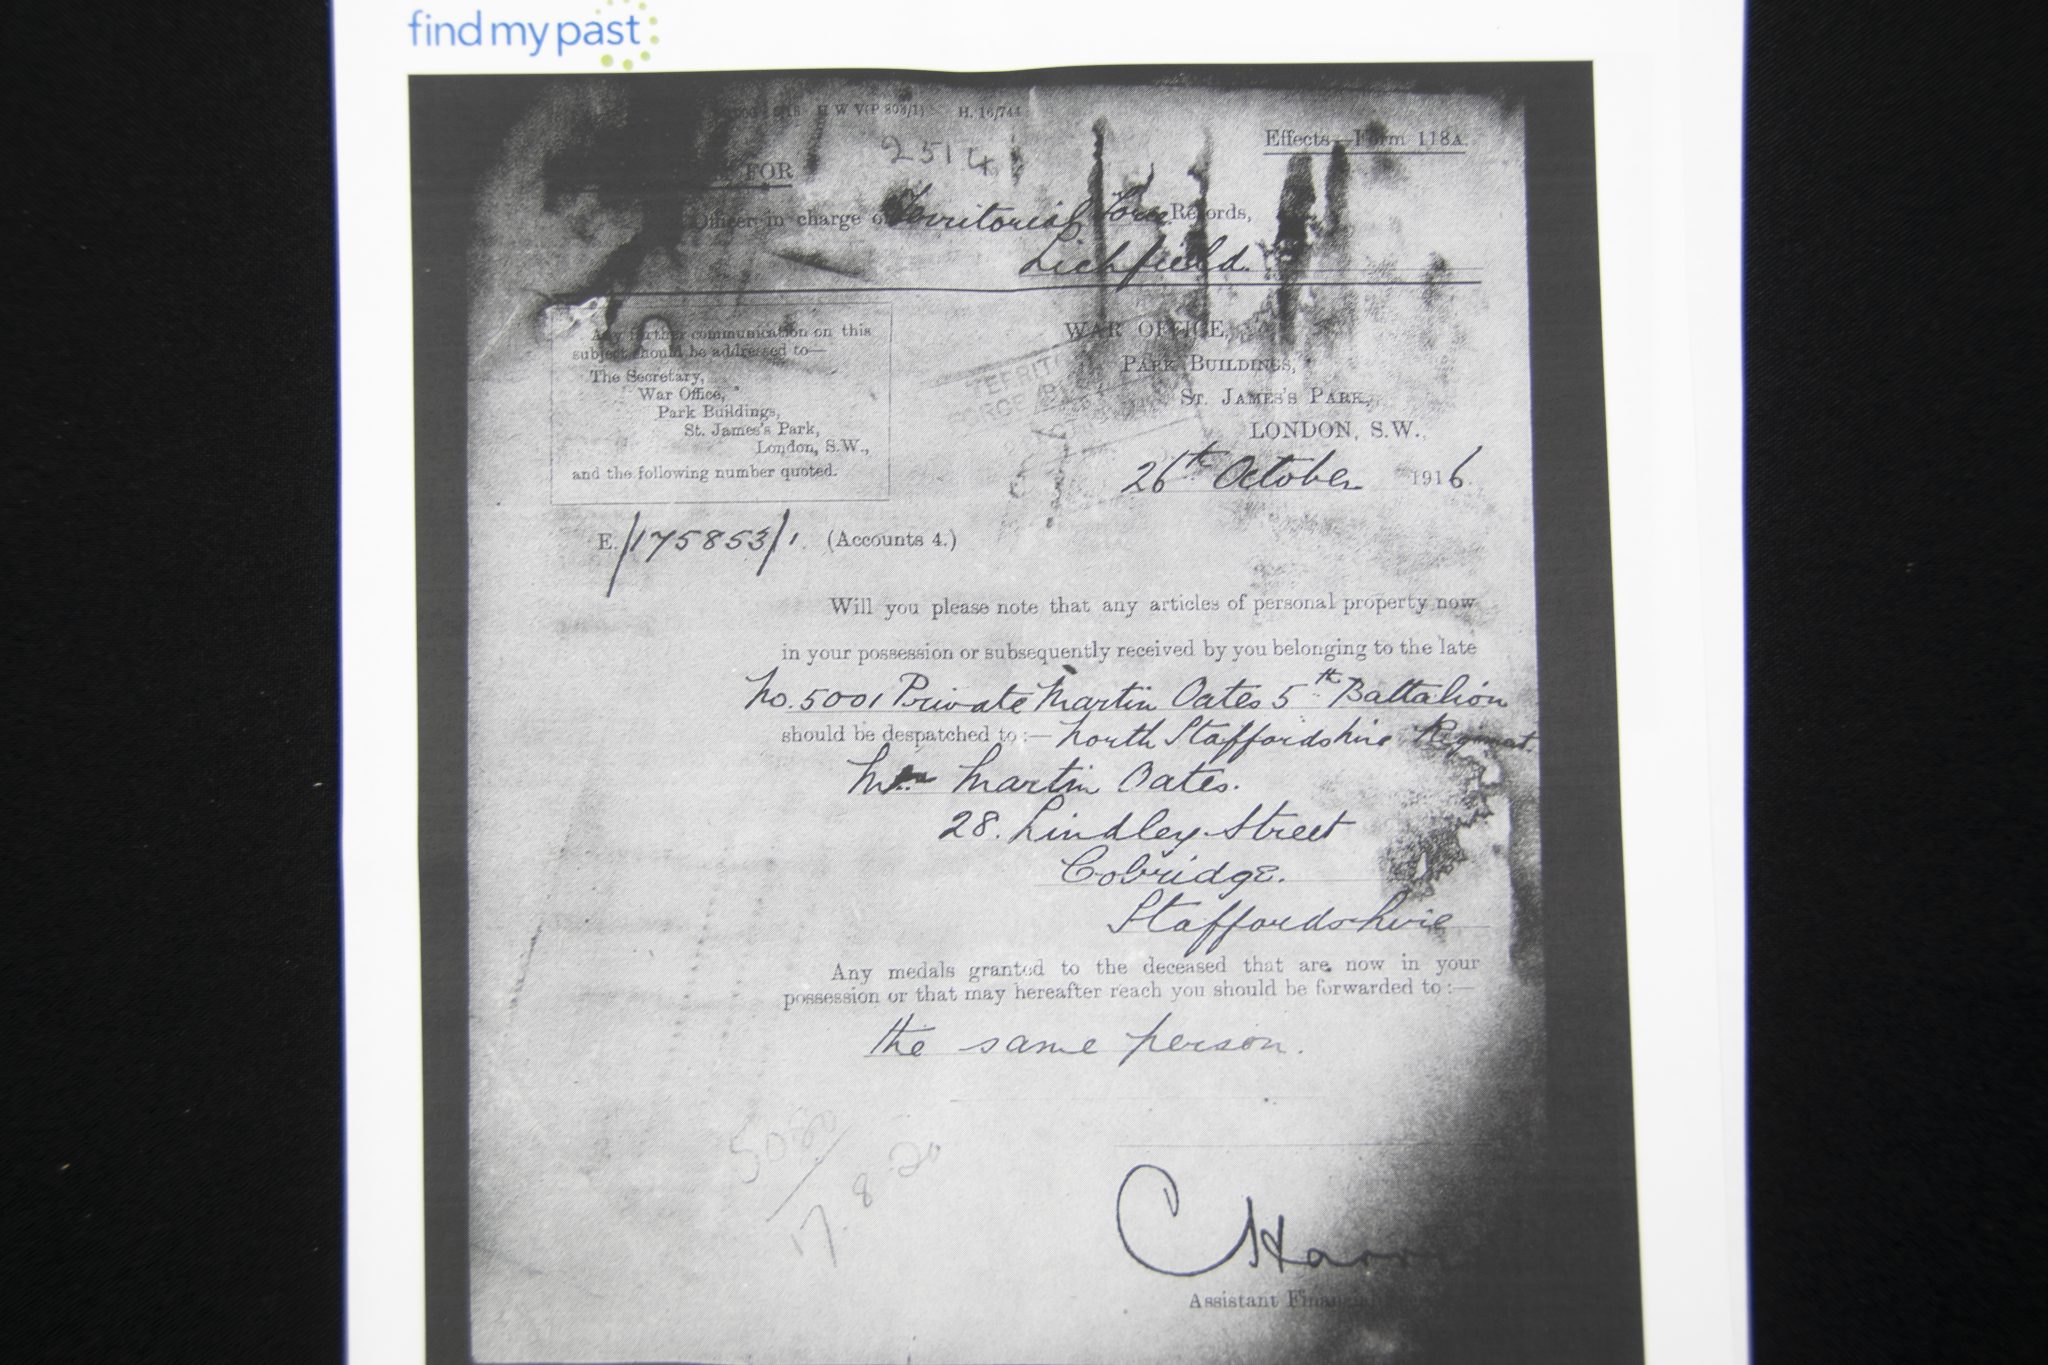 findmypast
H. W. V(P 803/1) H. 16/744
2514
Effects—Form 118A.
FOR
Officer in charge of Territorial Force Records,
Lichfield.
Any further communication on this
subject should be addressed to—
The Secretary,
War Office,
Park Buildings,
St. James's Park,
London, S.W.,
and the following number quoted.
WAR OFFICE,
PARK BUILDINGS,
ST. JAMES'S PARK,
LONDON, S.W.,
26th October 1916.
E./175853/1. (Accounts 4.)
Will you please note that any articles of personal property now
in your possession or subsequently received by you belonging to the late
No. 5001 Private Martin Oates 5th Battalion
should be despatched to :— North Staffordshire Regiment.
Martin Oates.
28. Lindley Street
Cobridge.
Staffordshire
Any medals granted to the deceased that are now in your
possession or that may hereafter reach you should be forwarded to :—
the same person.
17.8.20
C Harr
Assistant Financial